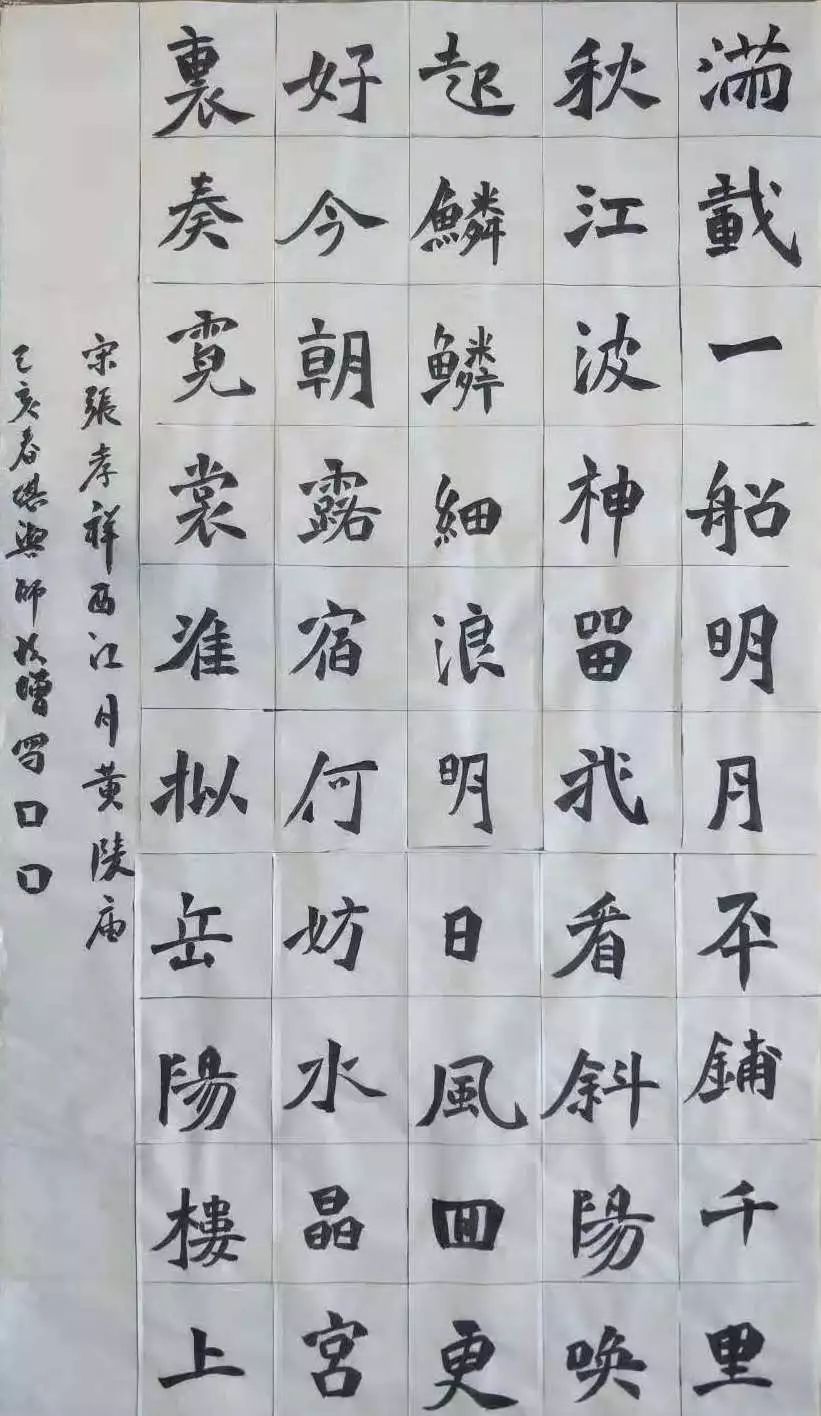 滿載一船明月平鋪千里
秋江波神留我看斜陽喚
起鱗鱗細浪明日風回更
好今朝露宿何妨水晶宮
裏奏霓裳准拟岳陽樓上
宋張孝祥西江月黄陵庙
己亥春堪輿師